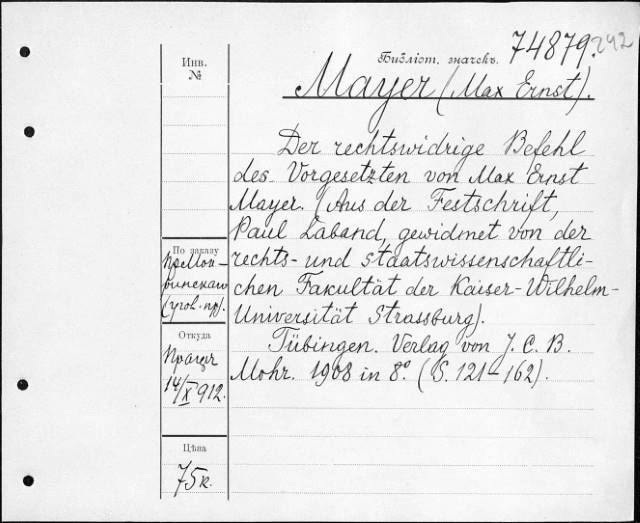 74879.
292
Инв.
№
Библіот. значекъ.
Mayer (Max Ernst).
Der rechtswidrige Befehl
des Vorgesetzten von Max Ernst
Mayer. (Aus der Festschrift,
Paul Laband, gewidmet von der
rechts- und staatswissenschaftli-
chen Fakultät der Kaiser-Wilhelm-
Universität Strassburg).
Tübingen. Verlag von J. C. B.
Mohr. 1908 in 8° (S. 121-162).
По заказу
(угол. пр).
Откуда
14/IX 912.
Цѣна
75к.